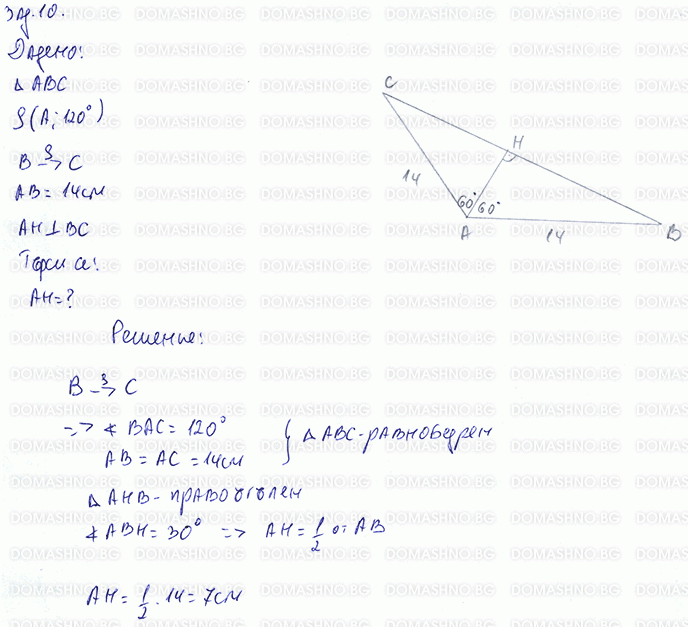 зад.10.
Дадено:
△ ABC
ρ(A; 120°)
B →ρ C
AB = 14см
AH ⊥ BC
Търси се:
AH = ?
C
H
14
60° 60°
A
14
B
Решение:
B →ρ C
=> ∢ BAC = 120°
AB = AC = 14см } △ ABC - равнобедрен
△ AHB - правоъгълен
∢ ABH = 30° => AH = 1/2 от AB
AH = 1/2 . 14 = 7см
DOMASHNO.BG